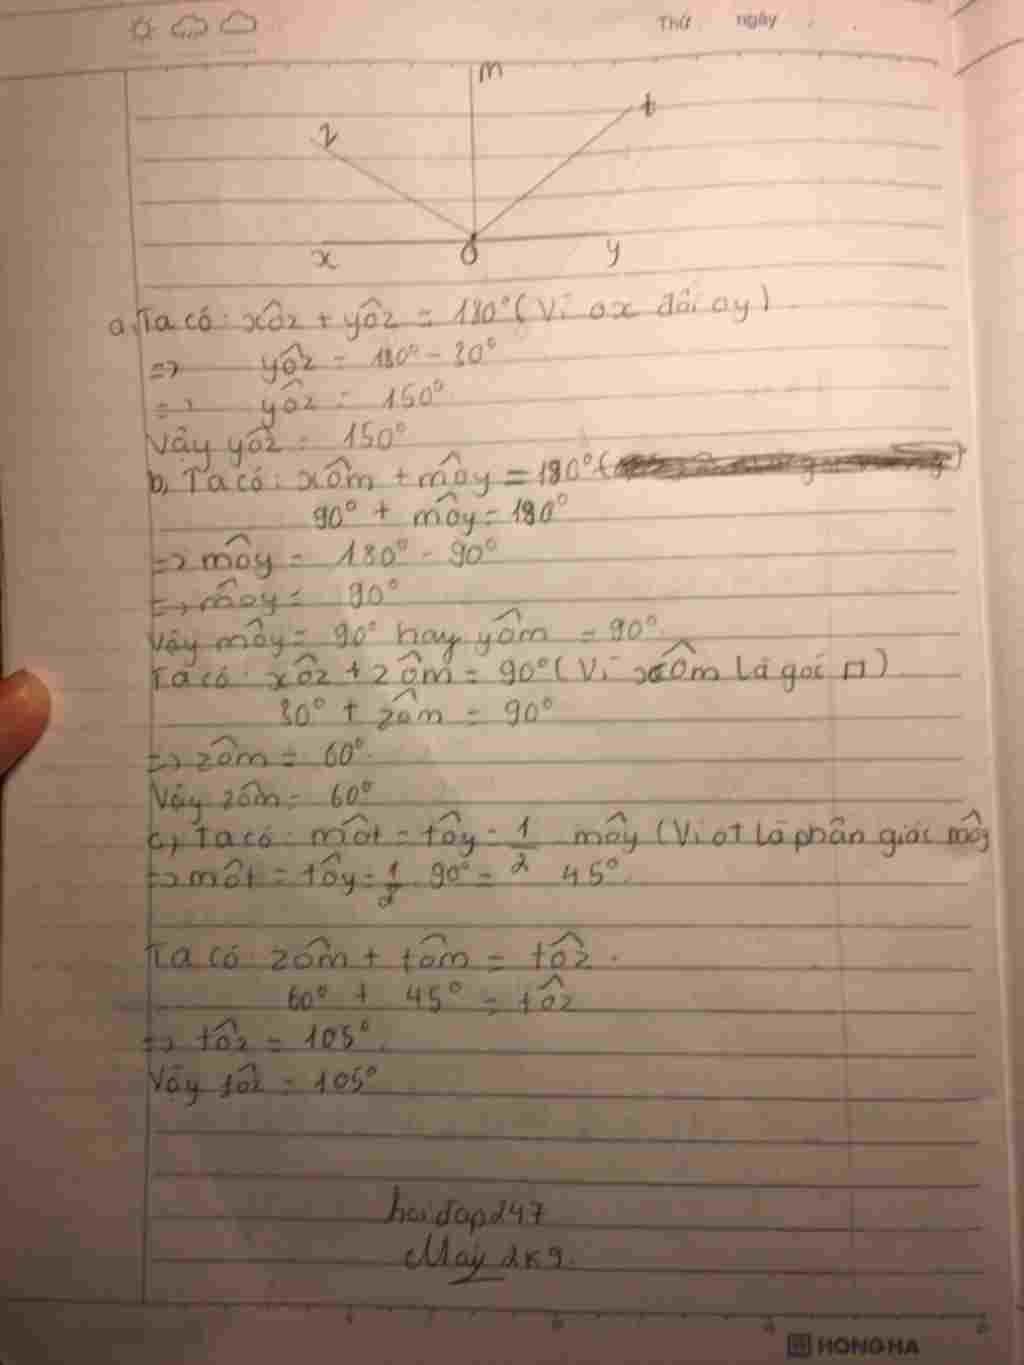 Thứ ngày
m
z
t
x
O
y
a, Ta có: xÔz + yÔz = 180° (Vì ox đối oy)
=> yÔz = 180° - 30°
=> yÔz = 150°
Vậy yÔz = 150°
b, Ta có: xÔm + mÔy = 180° (
90° + mÔy = 180°
=> mÔy = 180° - 90°
=> mÔy = 90°
Vậy mÔy = 90° hay yÔm = 90°.
Ta có: xÔz + zÔm = 90° (Vì xÔm là goć □)
30° + zÔm = 90°
=> zÔm = 60°.
Vậy zÔm = 60°
c, Ta có: mÔt = tÔy = 1/2 mÔy (Vì ot là phân giác mÔy
=> mÔt = tÔy = 1/2 . 90° = 45°.
Ta có zÔm + tÔm = tÔz.
60° + 45° = tÔz
=> tÔz = 105°.
Vậy tÔz = 105°
hoidap247
May 2k9.
HONG HA